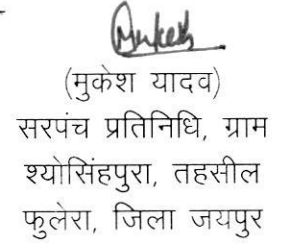 Mukesh
(मुकेश यादव)
सरपंच प्रतिनिधि, ग्राम
श्योसिंहपुरा, तहसील
फुलेरा, जिला जयपुर